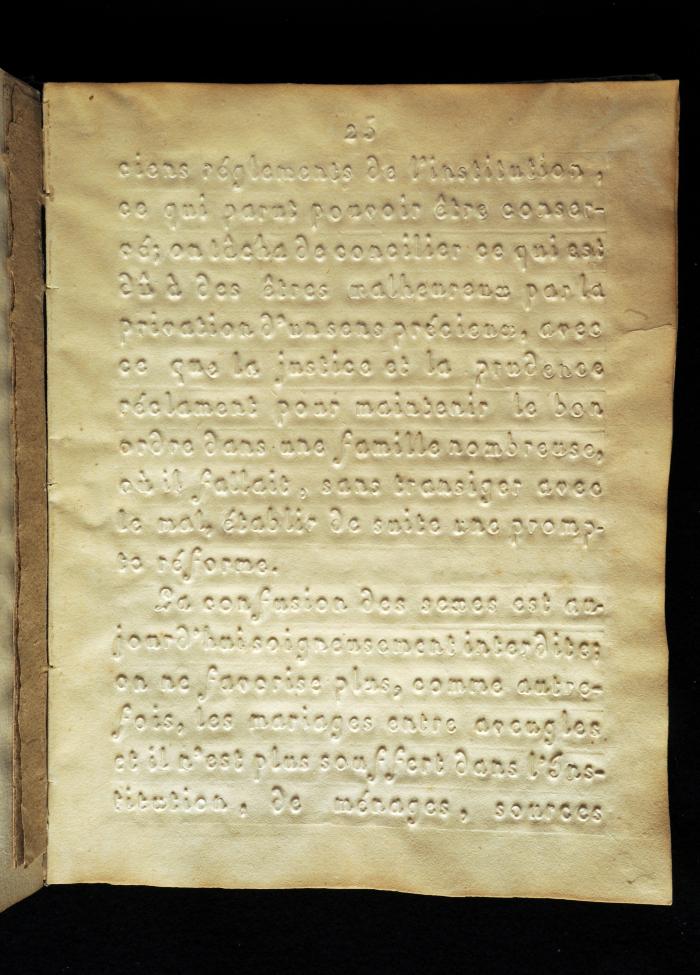 25
ciens réglements de l'institution,
ce qui parut pouvoir être conser-
vé; on tâcha de concilier ce qui est
dû à des êtres malheureux par la
privation d'un sens précieux, avec
ce que la justice et la prudence
réclament pour maintenir le bon
ordre dans une famille nombreuse,
où il fallait, sans transiger avec
le mal, établir de suite une promp-
te réforme.
La confusion des sexes est au-
jourd'hui soigneusement interdite;
on ne favorise plus, comme autre-
fois, les mariages entre aveugles
et il n'est plus souffert dans l'Ins-
titution, de ménages, sources